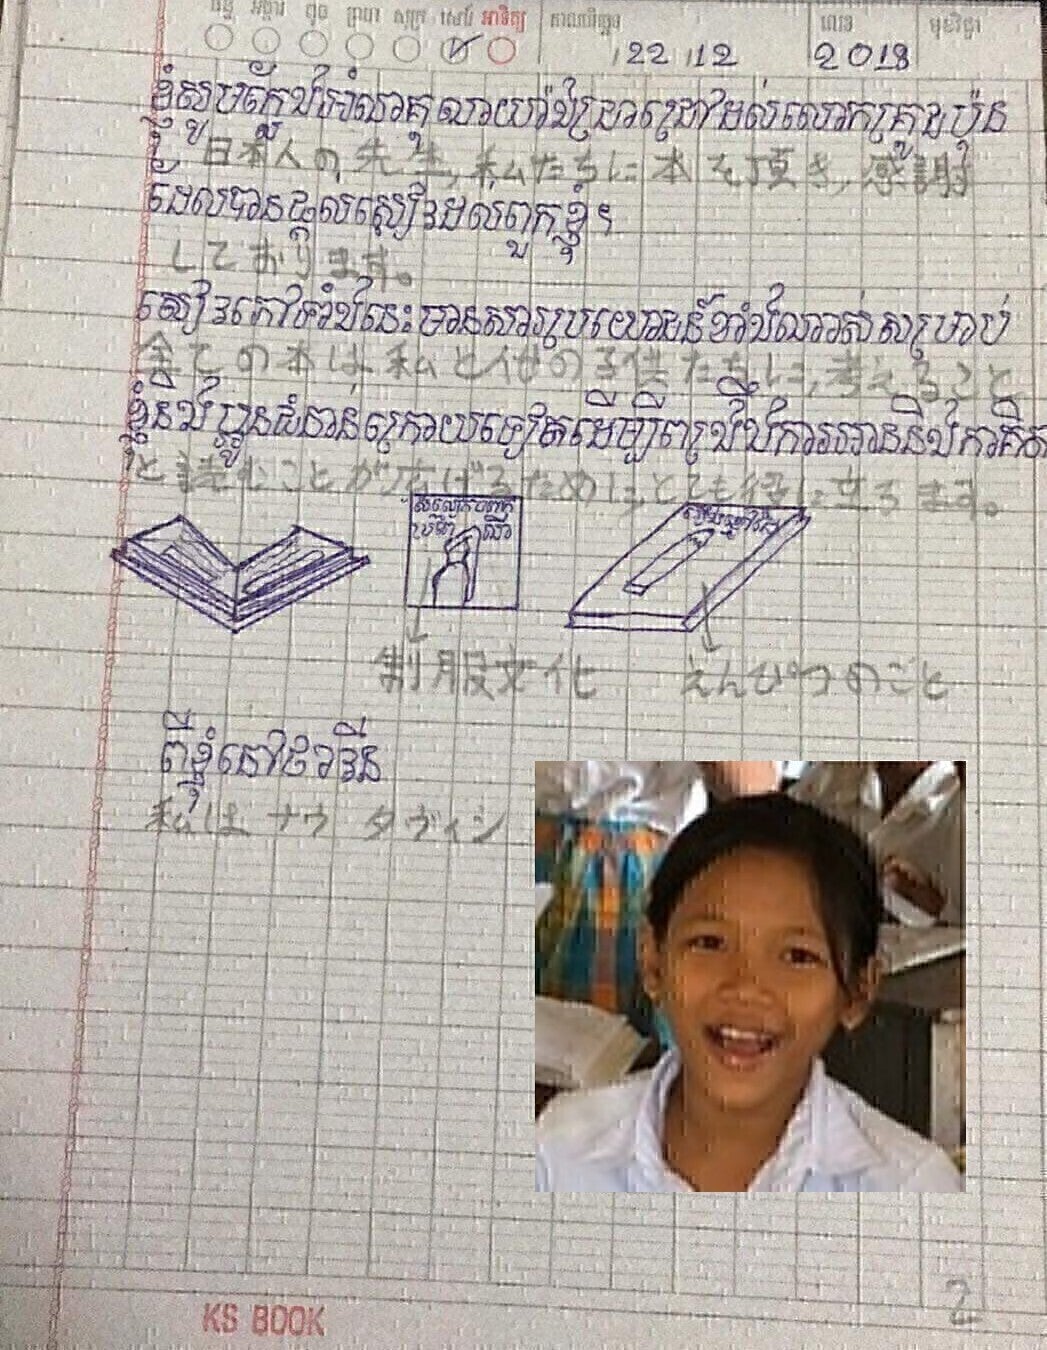 ចន្ទ អង្គារ ពុធ ព្រហ សុក្រ សៅរ៍ អាទិត្យ កាលបរិច្ឆេទ លេខ មុខវិជ្ជា
22 12 2018
ខ្ញុំសូមថ្លែងអំណរគុណយ៉ាងជ្រាលជ្រៅដល់លោកគ្រូជប៉ុន
日本人の先生, 私たちに本を頂き, 感謝
ដែលបានជួលសៀវដល់ពួកខ្ញុំ។
しております。
សៀវភៅទាំងនេះមានសារប្រយោជន៍ទាំងណាស់សម្រាប់
全ての本は私と他の子供たちに, 考えること
ខ្ញុំនិងប្អូនជំនាន់ក្រោយទៀតដើម្បីពង្រឹងការអាននិងការគិត
と読むことが広げるために, とても役に立ちます。
制服文化 えんぴつのごと
ពីខ្ញុំនៅថាវីន
私は ナウ タヴィン
KS BOOK
2